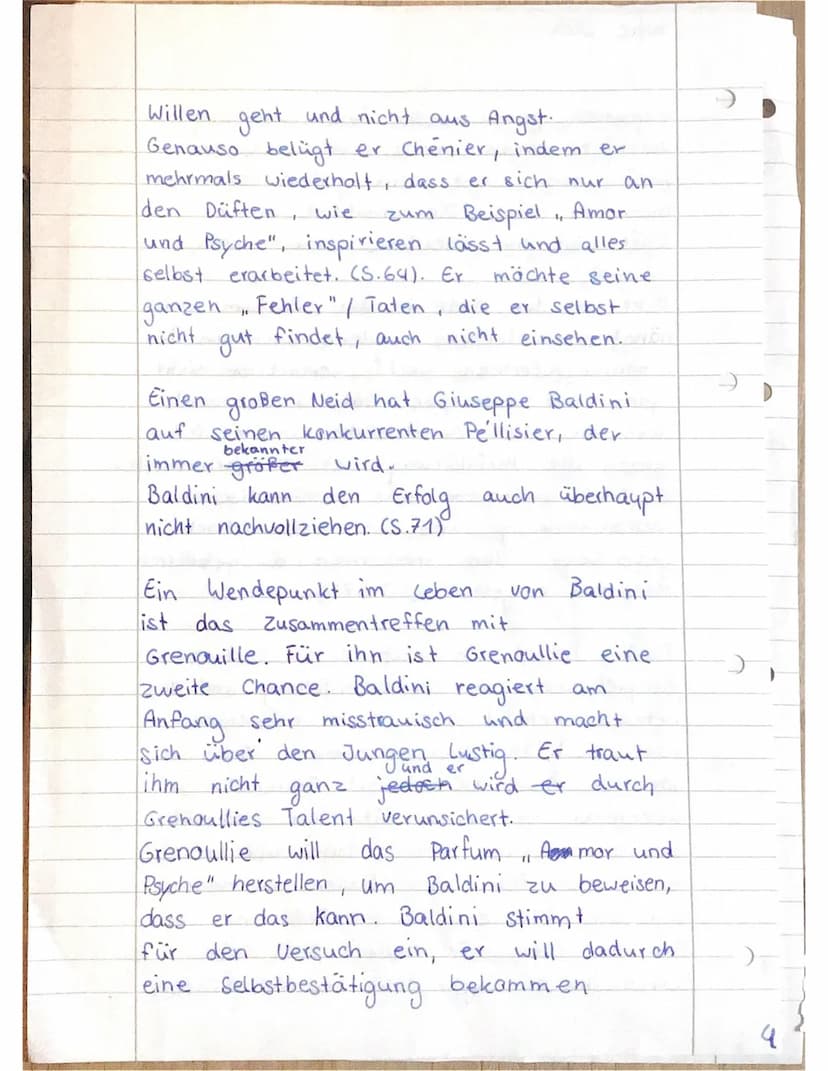 Willen geht und nicht aus Angst.
Genauso belügt er Chénier, indem er
mehrmals wiederholt, dass er sich nur an
den Düften, wie zum Beispiel „Amor
und Psyche", inspirieren lässt und alles
selbst erarbeitet. (S.64). Er möchte seine
ganzen „Fehler" / Taten, die er selbst
nicht gut findet, auch nicht einsehen.
Einen großen Neid hat Giuseppe Baldini
auf seinen Konkurrenten Péllisier, der
bekannter
immer größer wird.
Baldini kann den Erfolg auch überhaupt
nicht nachvollziehen. (S.71)
Ein Wendepunkt im Leben von Baldini
ist das Zusammentreffen mit
Grenouille. Für ihn ist Grenoullie eine
zweite Chance. Baldini reagiert am
Anfang sehr misstrauisch und macht
sich über den Jungen Lustig. Er traut
und er
ihm nicht ganz jedoch wird er durch
Grenoullies Talent verunsichert.
Grenoullie will das Parfum „Amor und
Psyche" herstellen, um Baldini zu beweisen,
dass er das kann. Baldini stimmt
für den Versuch ein, er will dadurch
eine Selbstbestätigung bekommen
4